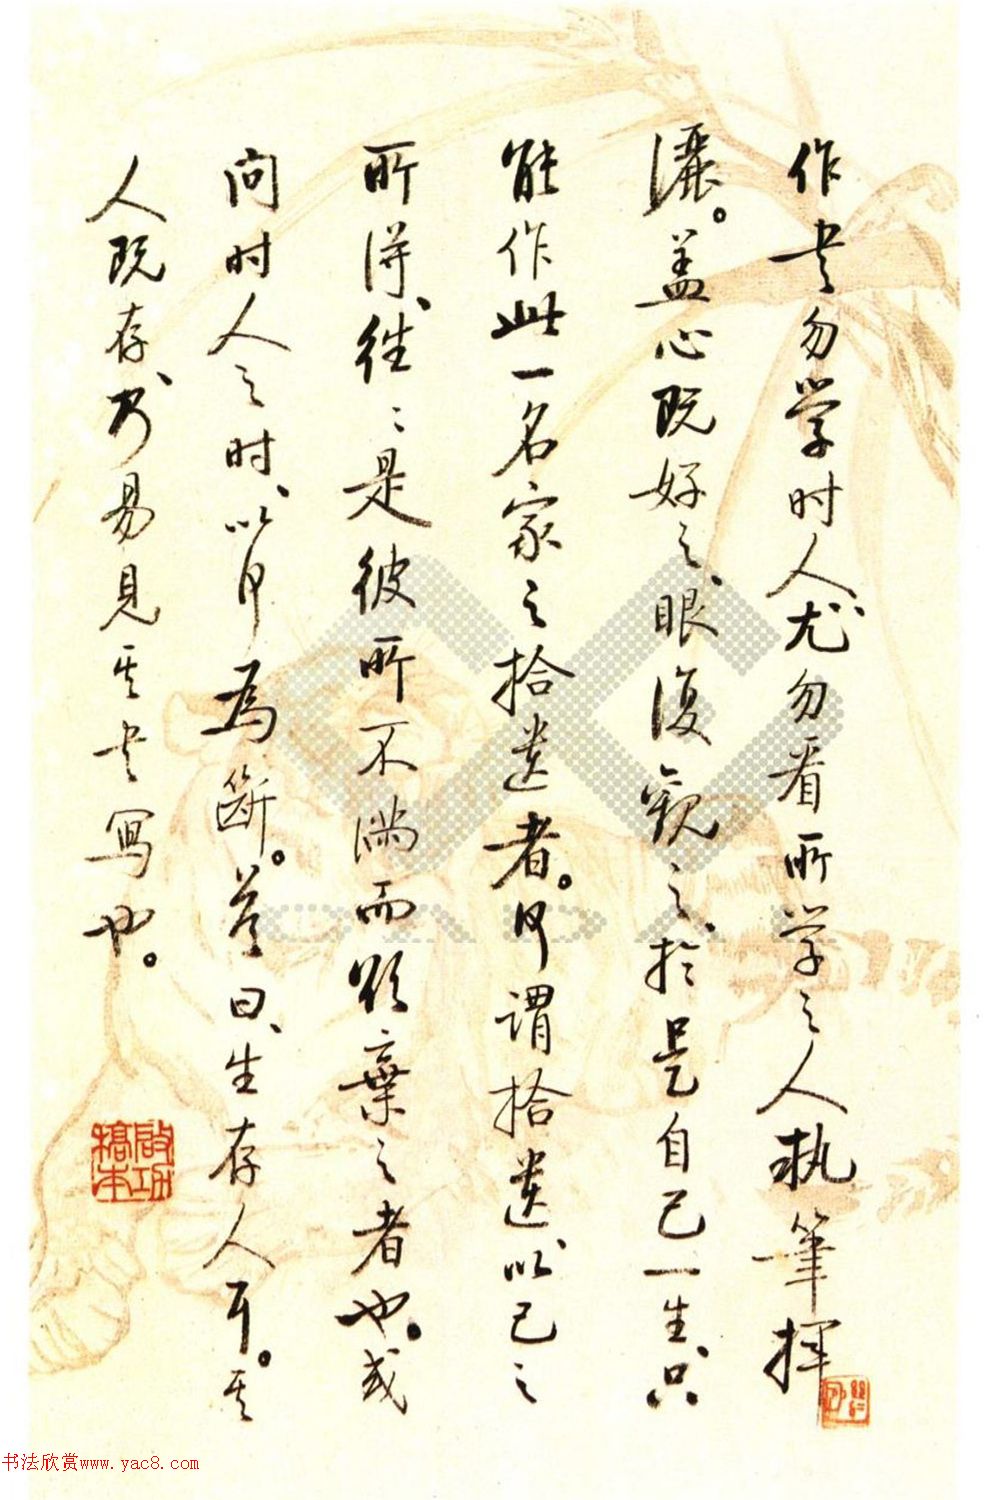 作书勿学时人、尤勿看所学之人执筆揮
灑。盖心既好之、眼復观之、於是自己一生、只
能作此一名家之拾遗者。何谓拾遗、以己之
所得、往往是彼所不满而欲棄之者也。或
问时人之时、以何為断。答曰、生存人耳。其
人既存、乃易見其书写也。
啟功
書法欣赏www.yac8.com